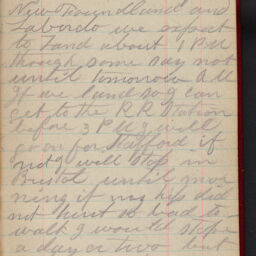 New Foundland and
Labordo we expect
to land about 1 P M
though some say not
until tomorrow A M
If we land so I can
get to the R R Station
before 3 P M I will
go on for Stafford if
not I will stop in
Bristol until mor
ning if my hip did
not hurt so bad to
walk I would stop
a day or two but